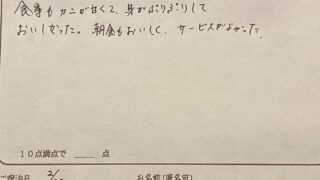 食事もカニが甘くて、身がぷりぷりして
おいしかった。朝食もおいしく、サービスがよかった。
10点満点で ＿＿ 点
ご宿泊日 2/
お名前(匿名可)